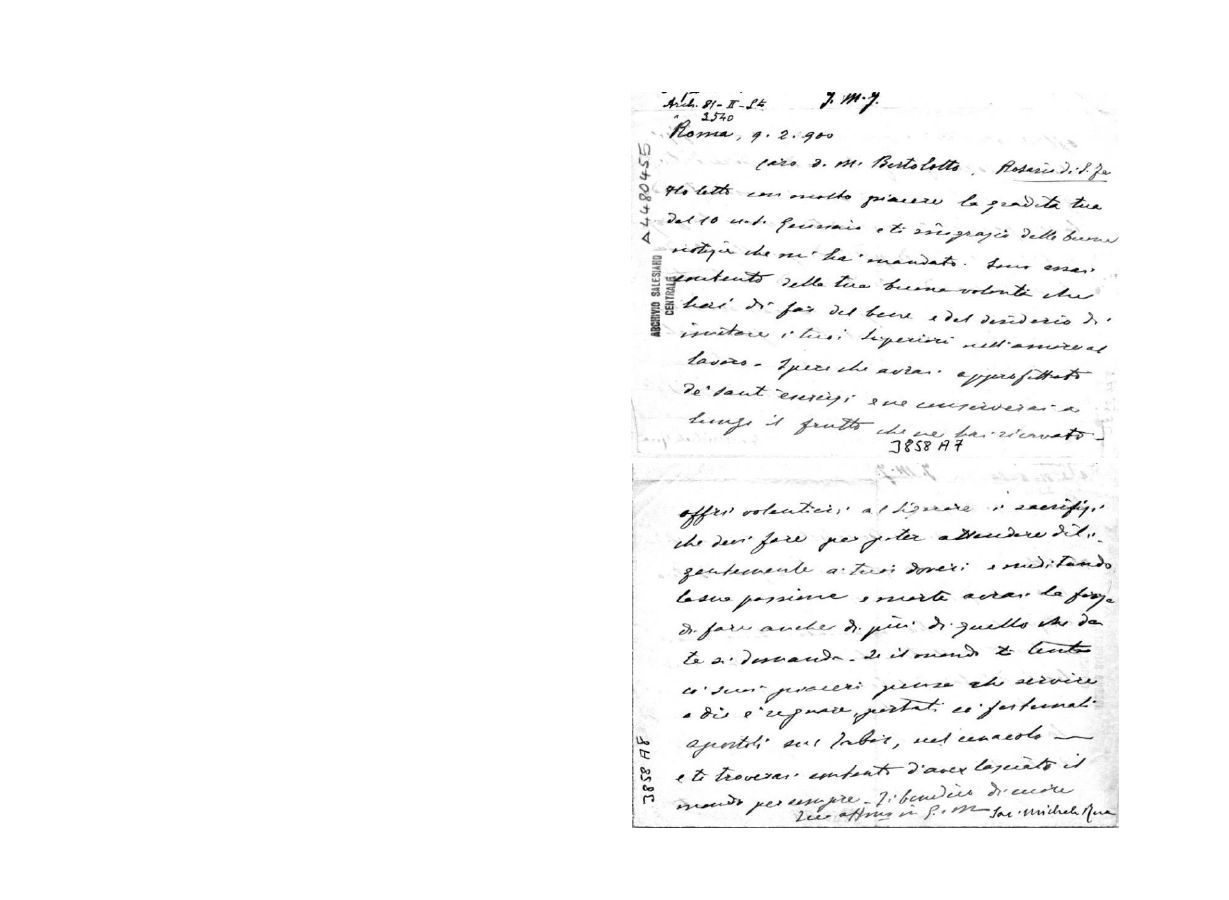 Arch. 81-II-
J. M. J.
2540
Roma, 9. 2. 900
Caro d. M. Bertolotto, Rosario di S. Fe
Ho letto con molto piacere la gradita tua
del 10 u.s. Gennaio e ti ringrazio delle buone
notizie che mi hai mandato. Sono assai
contento della tua buona volontà che
hai di far del bene e del desiderio di
imitare i tuoi Superiori nell'amore al
lavoro. Spero che avrai approfittato
de' santi esercizi e ne conserverai a
lungo il frutto che ne hai ricavato.
A4480455
ARCHIVIO SALESIANO
CENTRALE
3858 A7
Offri volentieri al Signore i sacrifizi
che devi fare per poter attendere dili-
gentemente a' tuoi doveri e meditando
la sua passione e morte avrai la forza
di fare anche di più di quello che da
te si domanda. Se il mondo ti tenta
co' suoi piaceri pensa che servire
a Dio è regnare, portati co' fortunati
apostoli sul Tabor, nel cenacolo
e ti troverai contento d'aver lasciato il
mondo per sempre. Ti benedico di cuore
Tuo aff.mo in G. e M. Sac. Michele Rua
3858 A8